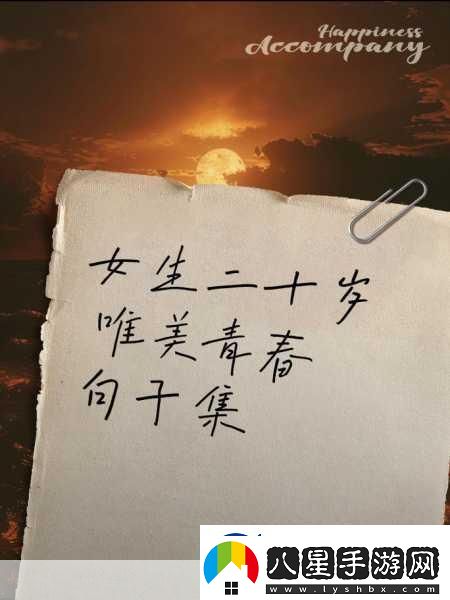 Happiness
Accompany
女生二十岁
唯美青春
句子集
八星手游网
www.lyshbx.com